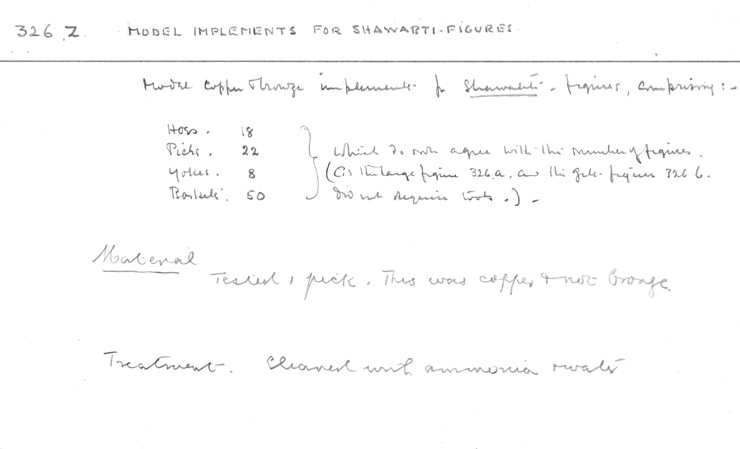 326 Z. MODEL IMPLEMENTS FOR SHAWABTI-FIGURES.
Model copper & bronze implements for Shawabti-figures, comprising:-
Hoes. 18
Picks. 22 which do not agree with the number of figures.
Yokes. 8 (the large figure 326.a. and the figure 326 b.
Baskets. 50 did not require tools.) -
Material
Tested 1 pick. This was copper & not bronze.
Treatment. Cleaned with ammonia & water